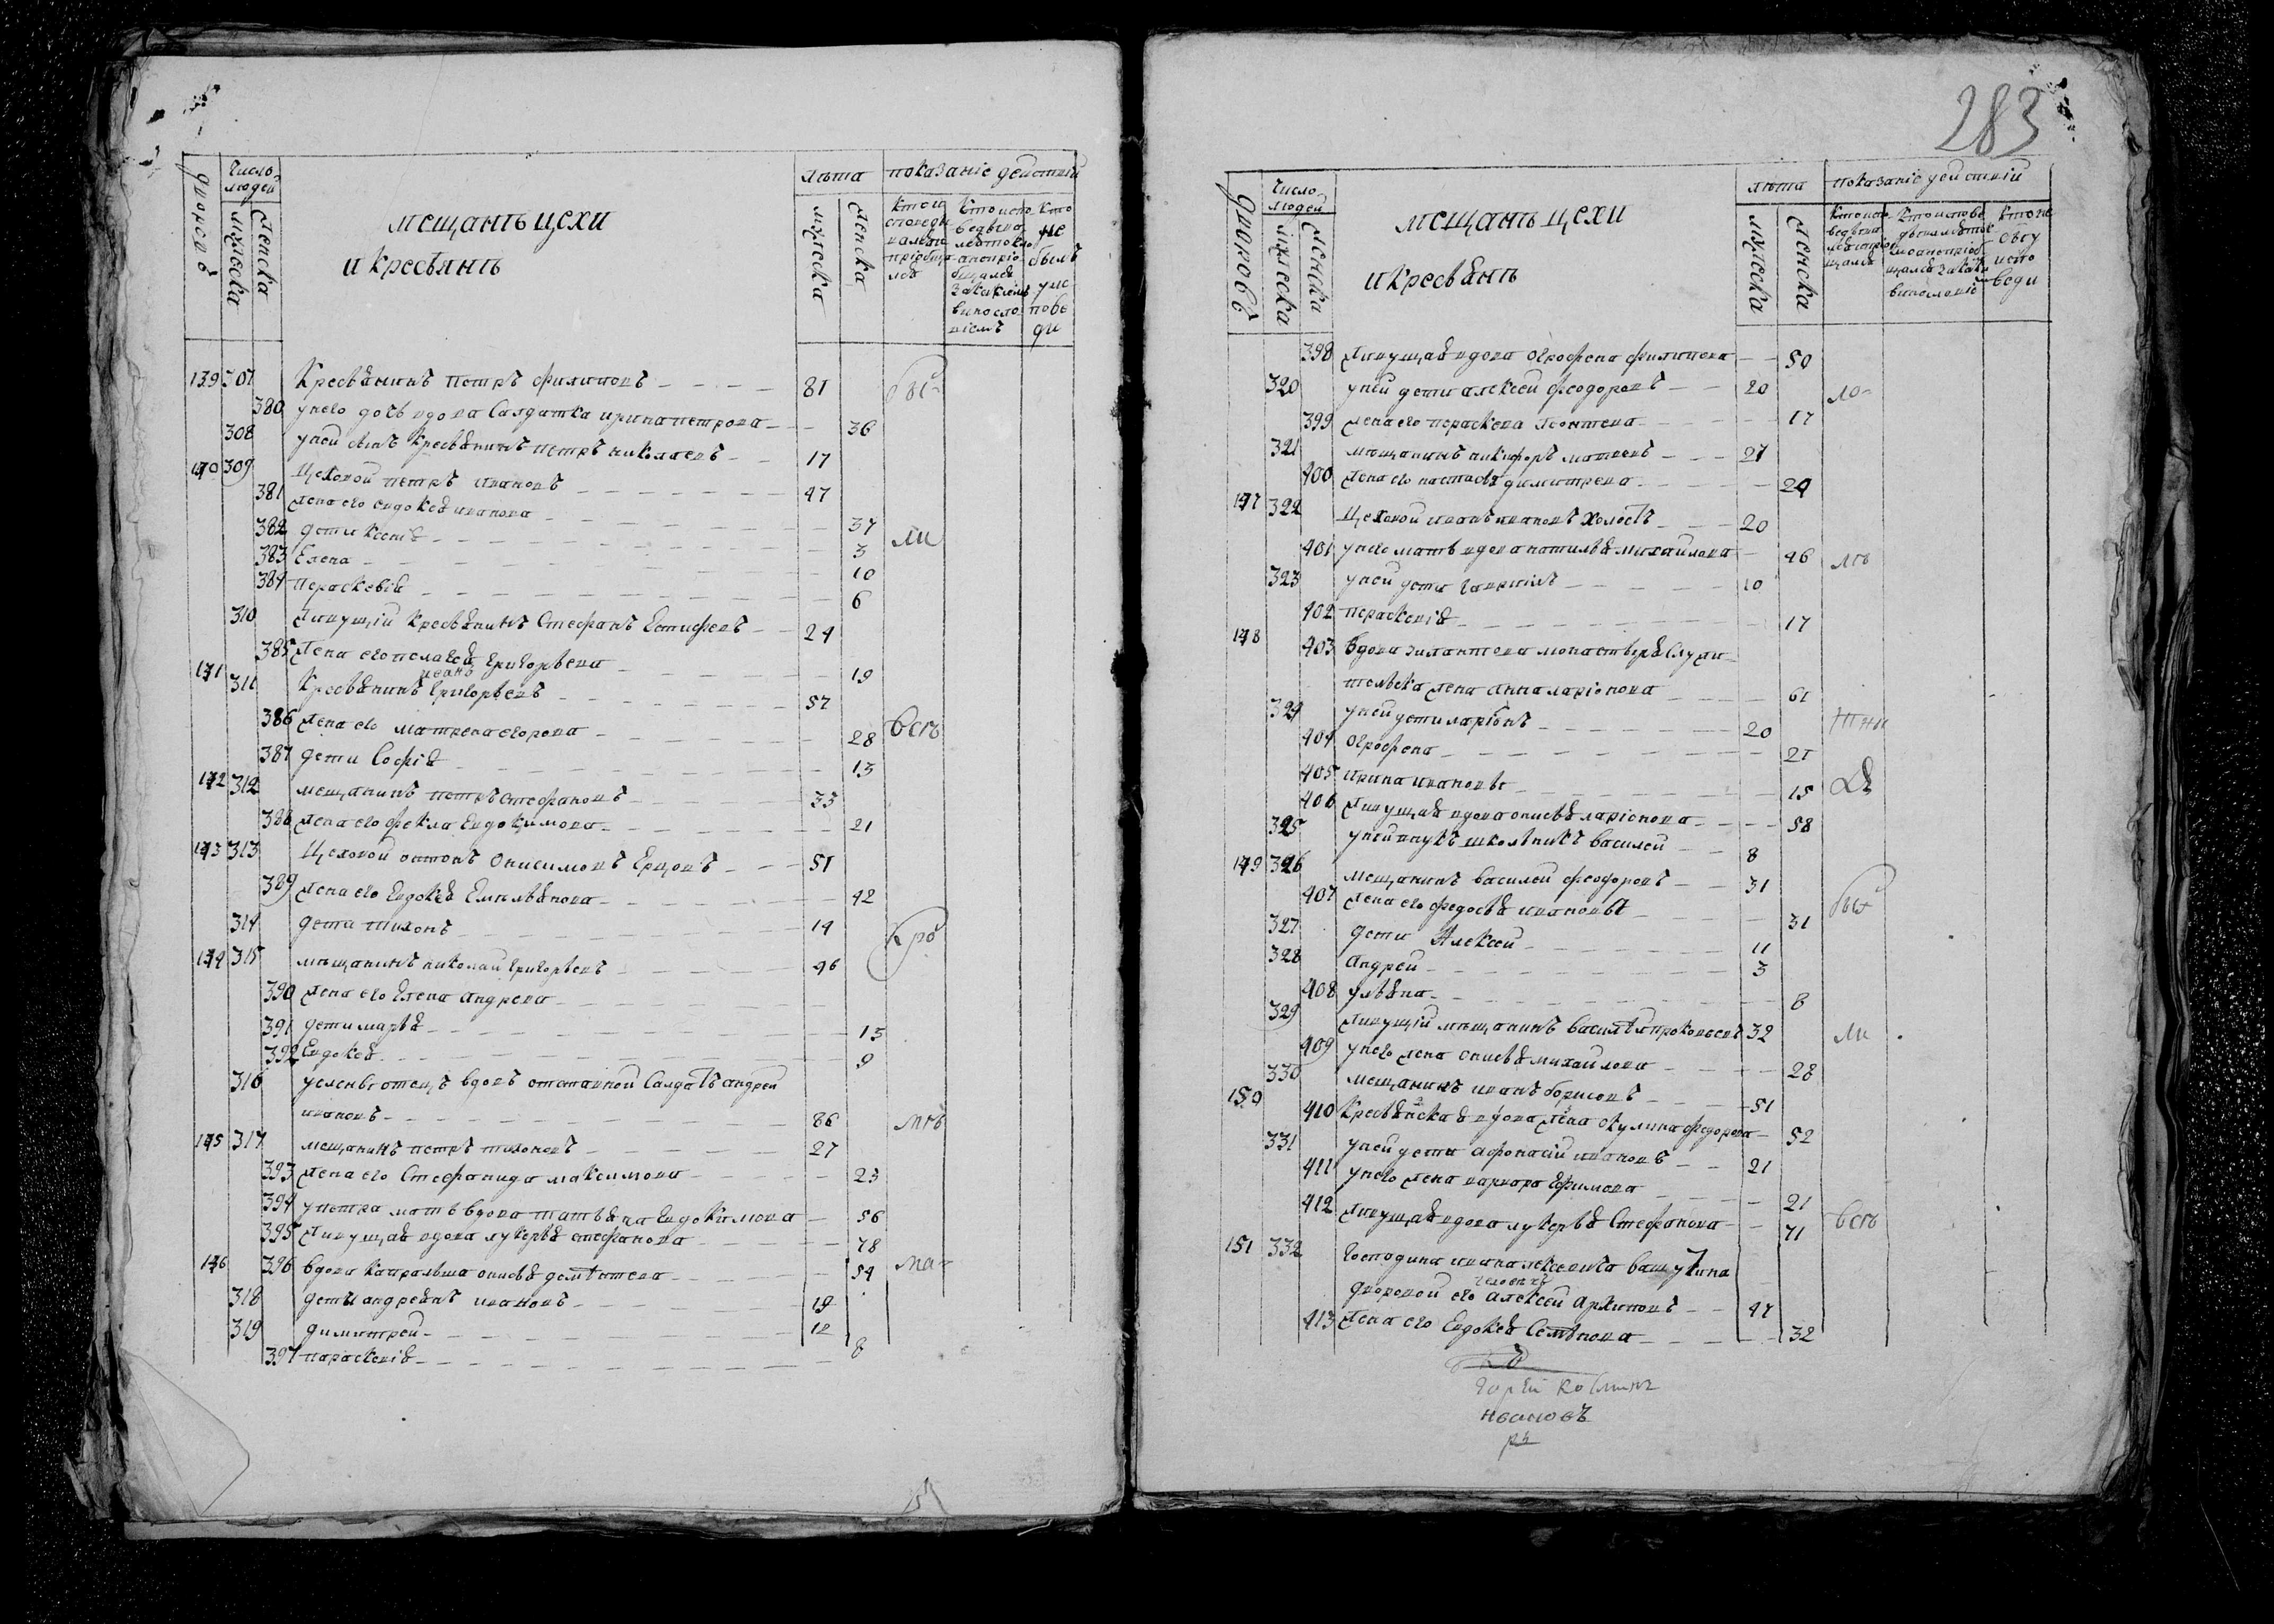 283
дворовъ
Число людей
мужеска
женска
мещанъ цехи
и кресьянъ
лѣта
мужеска
женска
показаніе действій
139 307 Кресьянинъ петръ филиповъ 81
380 унего дочь вдова Салдатка ирина петрова 36
308 уней сынъ кресьянинъ петръ николаевъ 17
140 309 Цеховой петръ ивановъ 47
381 жена его евдокея иванова 37
382 дети ксенія 3
383 Елена 10
384 пераскевія 6
310 живущій кресьянинъ Стефанъ Естифеевъ 24
385 жена его пелагея григорьева 19
141 311 Кресьянинъ иванъ григорьевъ 57
386 жена его матрена егорова 28
весь
387 дети Софія 13
142 312 мещанинъ петръ стефановъ 33
388 жена его фекла Евдокимова 21
143 313 Цеховой онтонъ Онисимовъ 51
389 жена его Евдокея Емельянова 42
314 дети тихонъ 14
144 315 мѣщанинъ николай григорьевъ 46
390 жена его Елена андрева
391 дети марья 13
392 Евдокея 9
316 отецъ вдовъ отставной Салдатъ андрей
ивановъ 86
145 317 мещанинъ петръ тихоновъ 27
393 жена его Стефанида максимова 23
394 упетра мать вдова татьяна Евдокимова 56
395 живущая вдова лукерья стефанова 78
146 396 вдова капральша онисья 54
318 дети андреянъ ивановъ 19
319 димитрей 12
397 параскевія 8
дворовъ
Число людей
мужеска
женска
мещанъ цехи
и кресьянъ
лѣта
мужеска
женска
показаніе действій
398 живущая вдова огрофена филипова 50
320 уней дети алексей феодоровъ 20
399 жена его пераскева леонтева 17
321 мѣщанинъ никифоръ матвеевъ 27
400 жена его настасья димитрева 24
147 322 Цеховой иванъ ивановъ холостъ 20
401 унего мать вдова наталья михайлова 46
323 уней дети гаврилъ 10
402 пераскевія 17
148 403 Вдова зилантова монастыря служи-
тельска жена анна ларіонова 61
324 уней дети ларіонъ 20
404 огрофена 21
405 ирина ивановы 15
406 живущая вдова онисья ларіонова 58
325 уней внукъ школьникъ василей 8
149 326 мещанинъ василей феодоровъ 31
407 жена его федосья иванова 31
327 дети Алексей 11
328 андрей 3
408 ульяна 8
329 живущій мѣщанинъ василей прокопьевъ 32
409 унего жена онисья михайлова 28
330 мещанинъ иванъ борисовъ 51
150 410 Кресьянская вдова жена окулина федорова 52
331 уней дети афонасий ивановъ 21
411 унего жена варвара Ефимова 21
412 живущая вдова лукерья Стефанова 71
весь
151 332 Господина ивана
дворовой его человекъ алексей архиповъ 47
413 жена его Евдокея Семѣнова 32